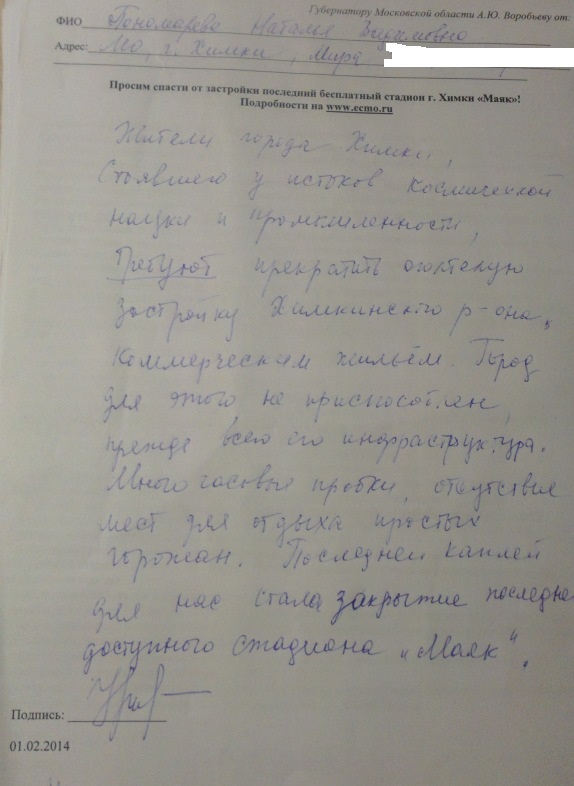 Губернатору Московской области А.Ю. Воробьеву от:
ФИО Пономарева Наталья
Адрес: МО, г. Химки, Мира
Просим спасти от застройки последний бесплатный стадион г. Химки «Маяк»!
Подробности на www.ecmo.ru
Жители города Химки,
Стоявшего у истоков космической
науки и промышленности,
Требуют прекратить
застройку Химкинского р-она,
коммерческим жильём. Город
для этого не приспособлен,
прежде всего его инфраструктура.
Много часовые пробки, отсутствие
мест для отдыха простых
горожан. Последней каплей
для нас стала закрытие последне
доступного стадиона „Маяк".
Подпись:
01.02.2014